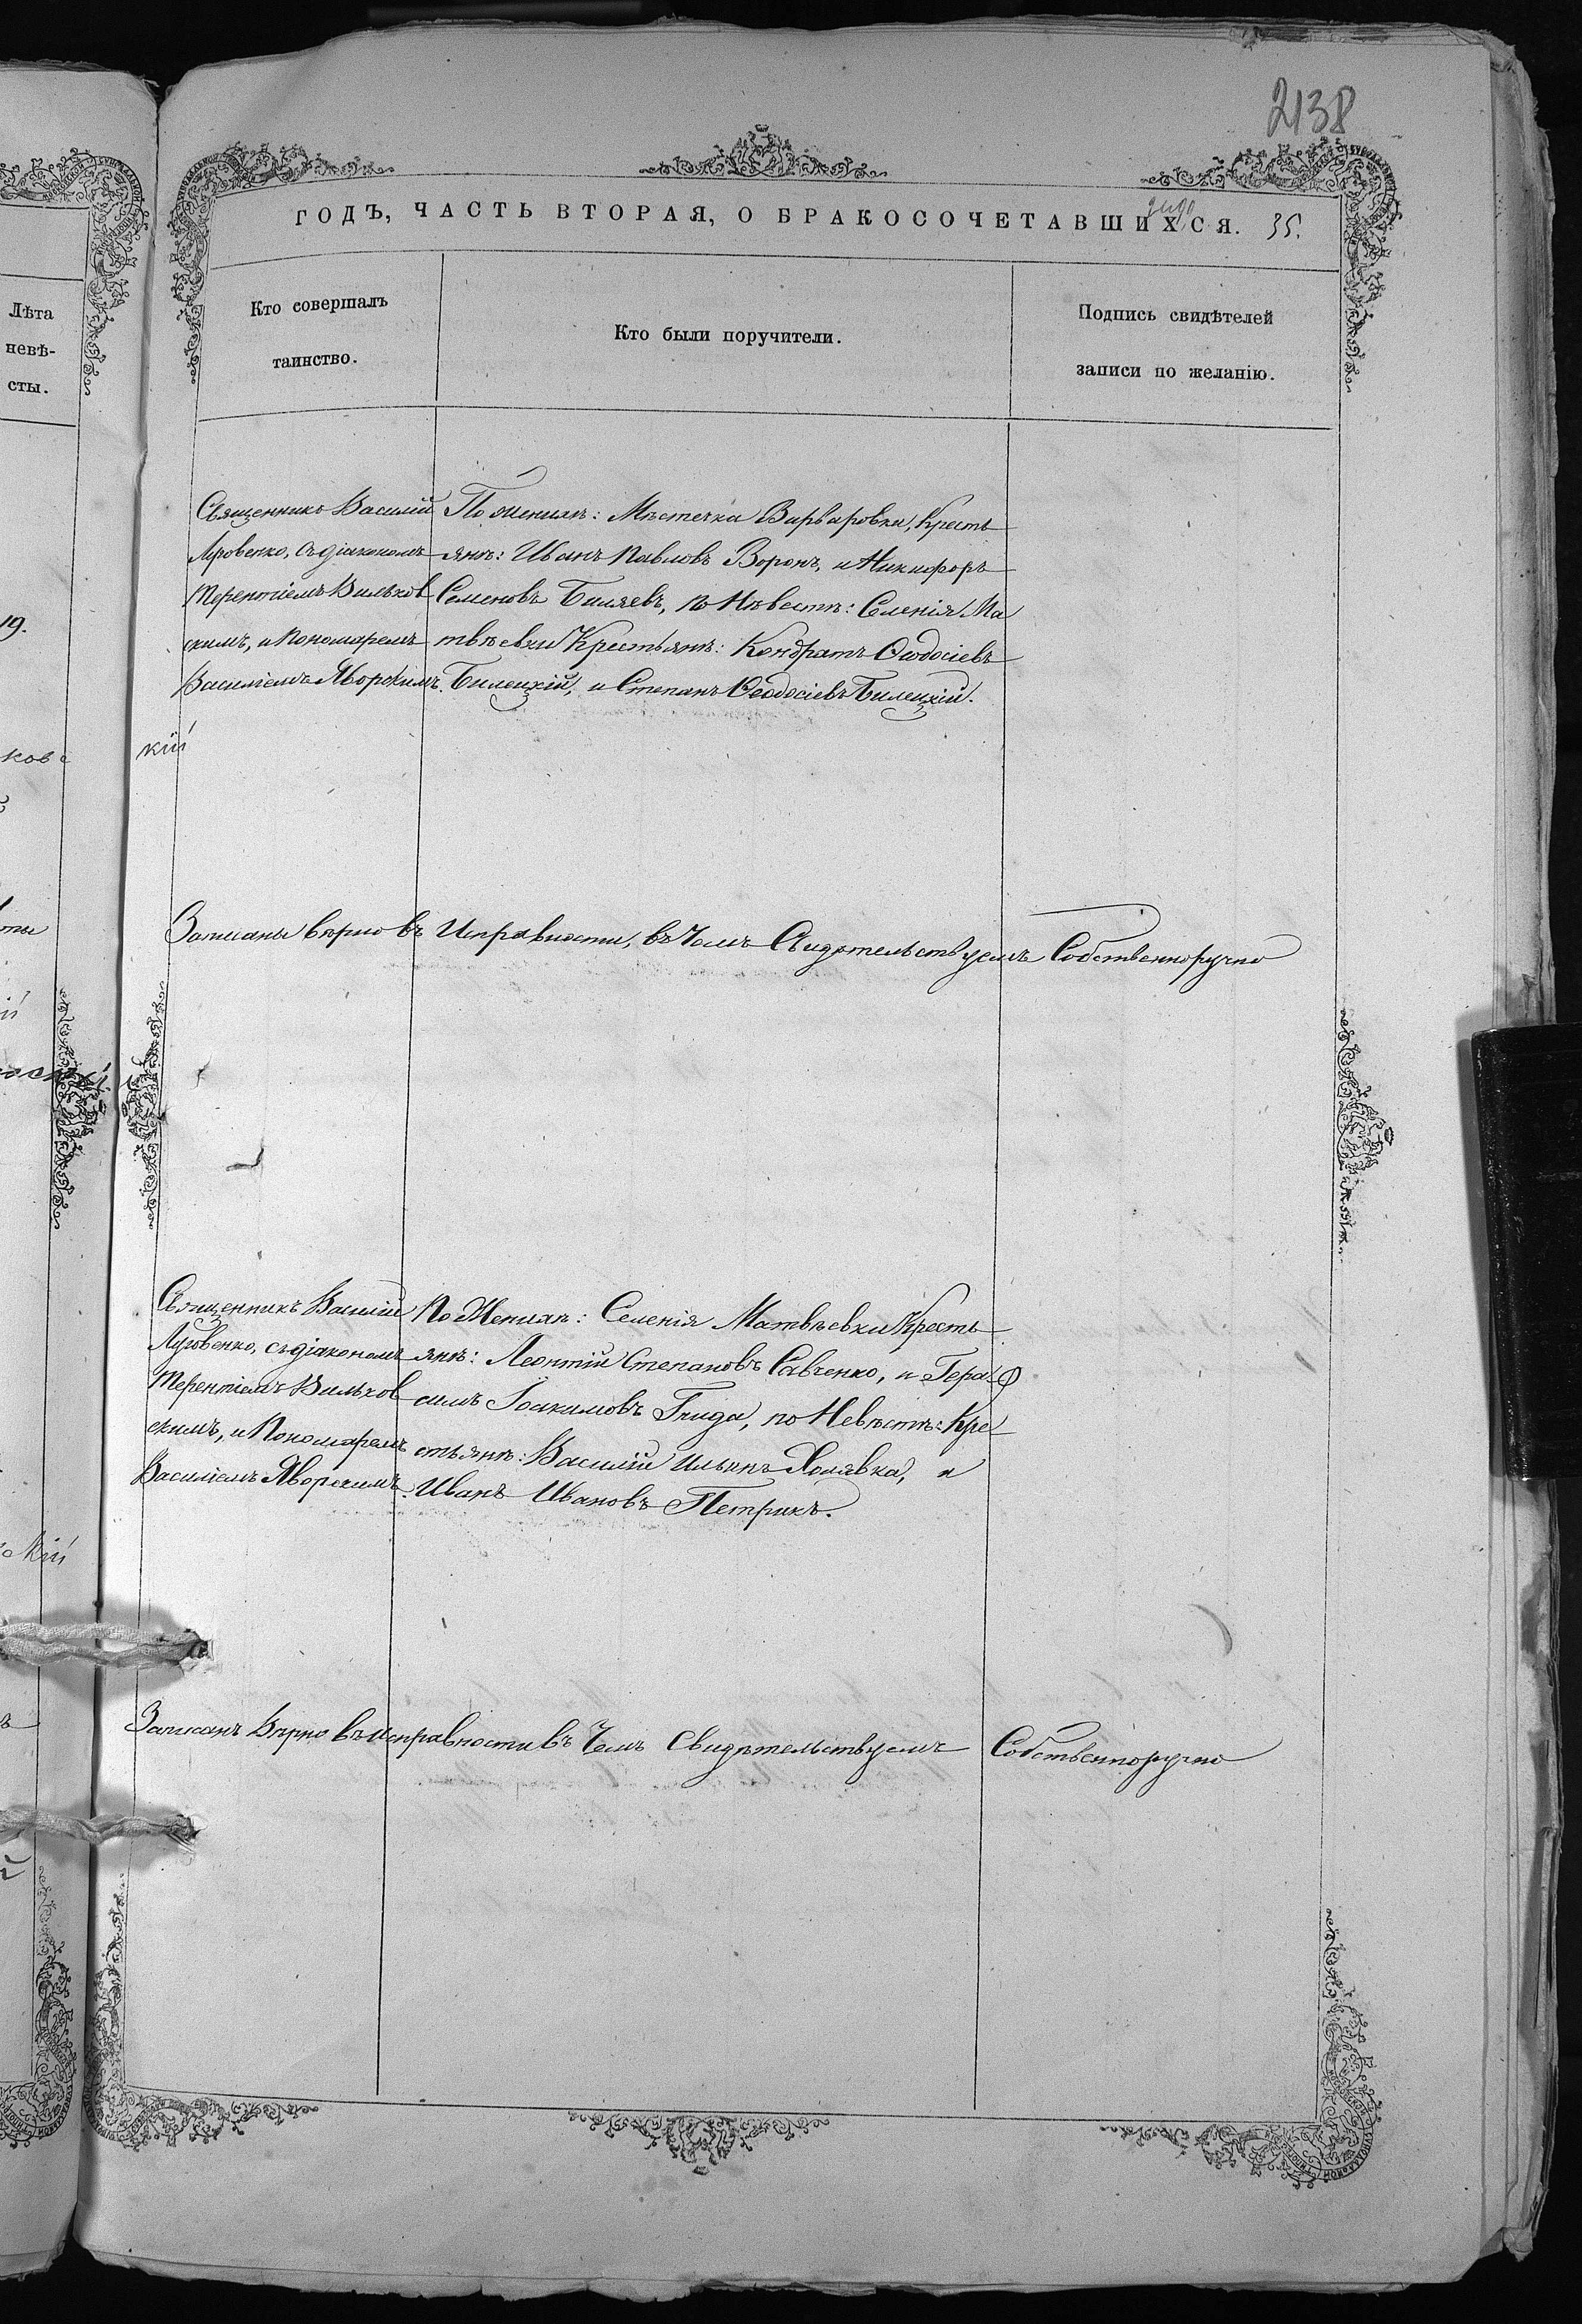 2138
ГОДЪ, ЧАСТЬ ВТОРАЯ, О БРАКОСОЧЕТАВШИХСЯ. 35.
Лѣта
невѣ-
сты.
Кто совершалъ
таинство.
Кто были поручители.
Подпись свидѣтелей
записи по желанію.
19.
Священникъ Василій
Луговенко, съ діакономъ
Терентіемъ Вильхов
скимъ, и Пономаремъ
Василіемъ Яворскимъ.
По женихѣ: Мѣстечка Варваровки, Кресть
янѣ: Иванъ Павловъ Воронъ, и Никифоръ
Семеновъ Биляевъ, по Невѣстѣ: Селенія Ма
твѣевки Крестьянѣ: Кондратъ Ѳеодосіевъ
Билецкій, и Степанъ Ѳеодосіевъ Билецкій.
кій
Записаны вѣрно въ Исправности, въ Чемъ Свидѣтельствуемъ Собственноручно
Священникъ Василій
Луговенко, съ діакономъ
Терентіемъ Вильхов
скимъ, и Пономаремъ
Василіемъ Яворскимъ.
По Женихѣ: Селенія Матвѣевки Кресть
янѣ: Леонтій Степановъ Савченко, и Гера
симъ Іоакимовъ Гнида, по Невѣстѣ: Кре
стьянѣ: Василій Ильинъ Холявка, и
Иванъ Ивановъ Петрикъ.
Записанъ Вѣрно въ исправности въ Чемъ Свидѣтельствуемъ Собственноручно